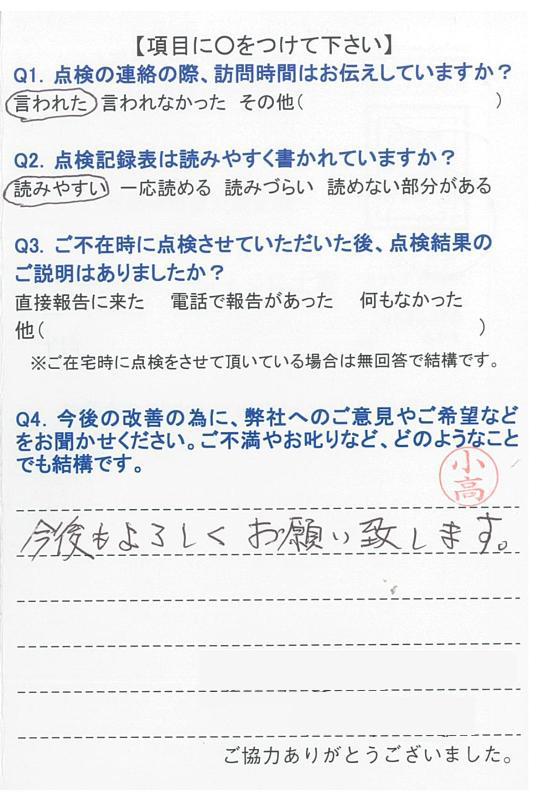 【項目に〇をつけて下さい】
Q1. 点検の連絡の際、訪問時間はお伝えしていますか？
言われた 言われなかった その他( )
Q2. 点検記録表は読みやすく書かれていますか？
読みやすい 一応読める 読みづらい 読めない部分がある
Q3. ご不在時に点検させていただいた後、点検結果の
ご説明はありましたか？
直接報告に来た 電話で報告があった 何もなかった
他( )
※ご在宅時に点検をさせて頂いている場合は無回答で結構です。
Q4. 今後の改善の為に、弊社へのご意見やご希望など
をお聞かせください。ご不満やお叱りなど、どのようなこと
でも結構です。
小高
今後もよろしくお願い致します。
ご協力ありがとうございました。